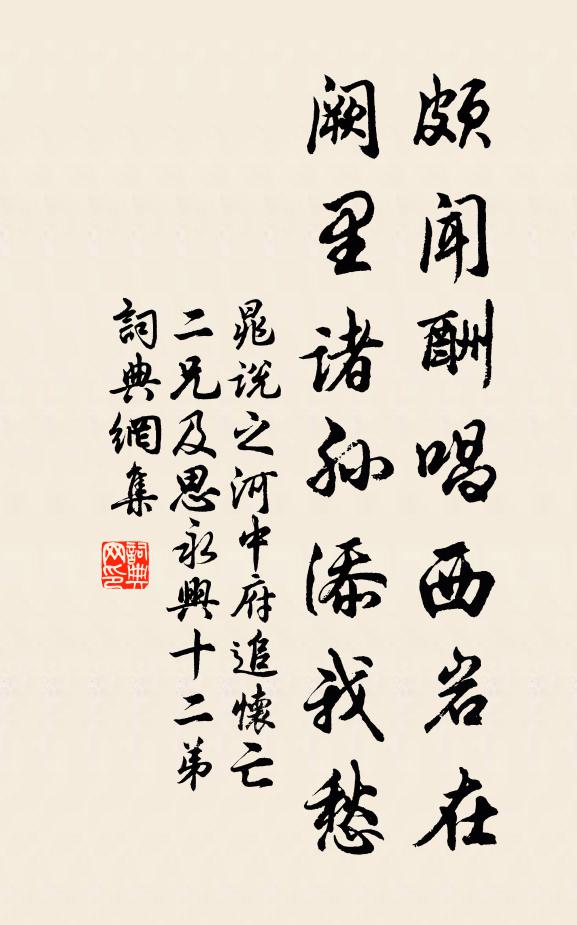 颇闻酬唱西岩在
阙里诸孙添我愁
晁说之河中府追懷亡
二兄及思永興十二弟
詞典網集
詞典
网印